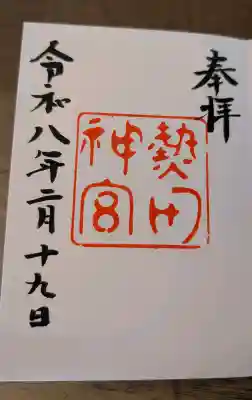 奉拝
熱田
神宮
令和八年二月十九日